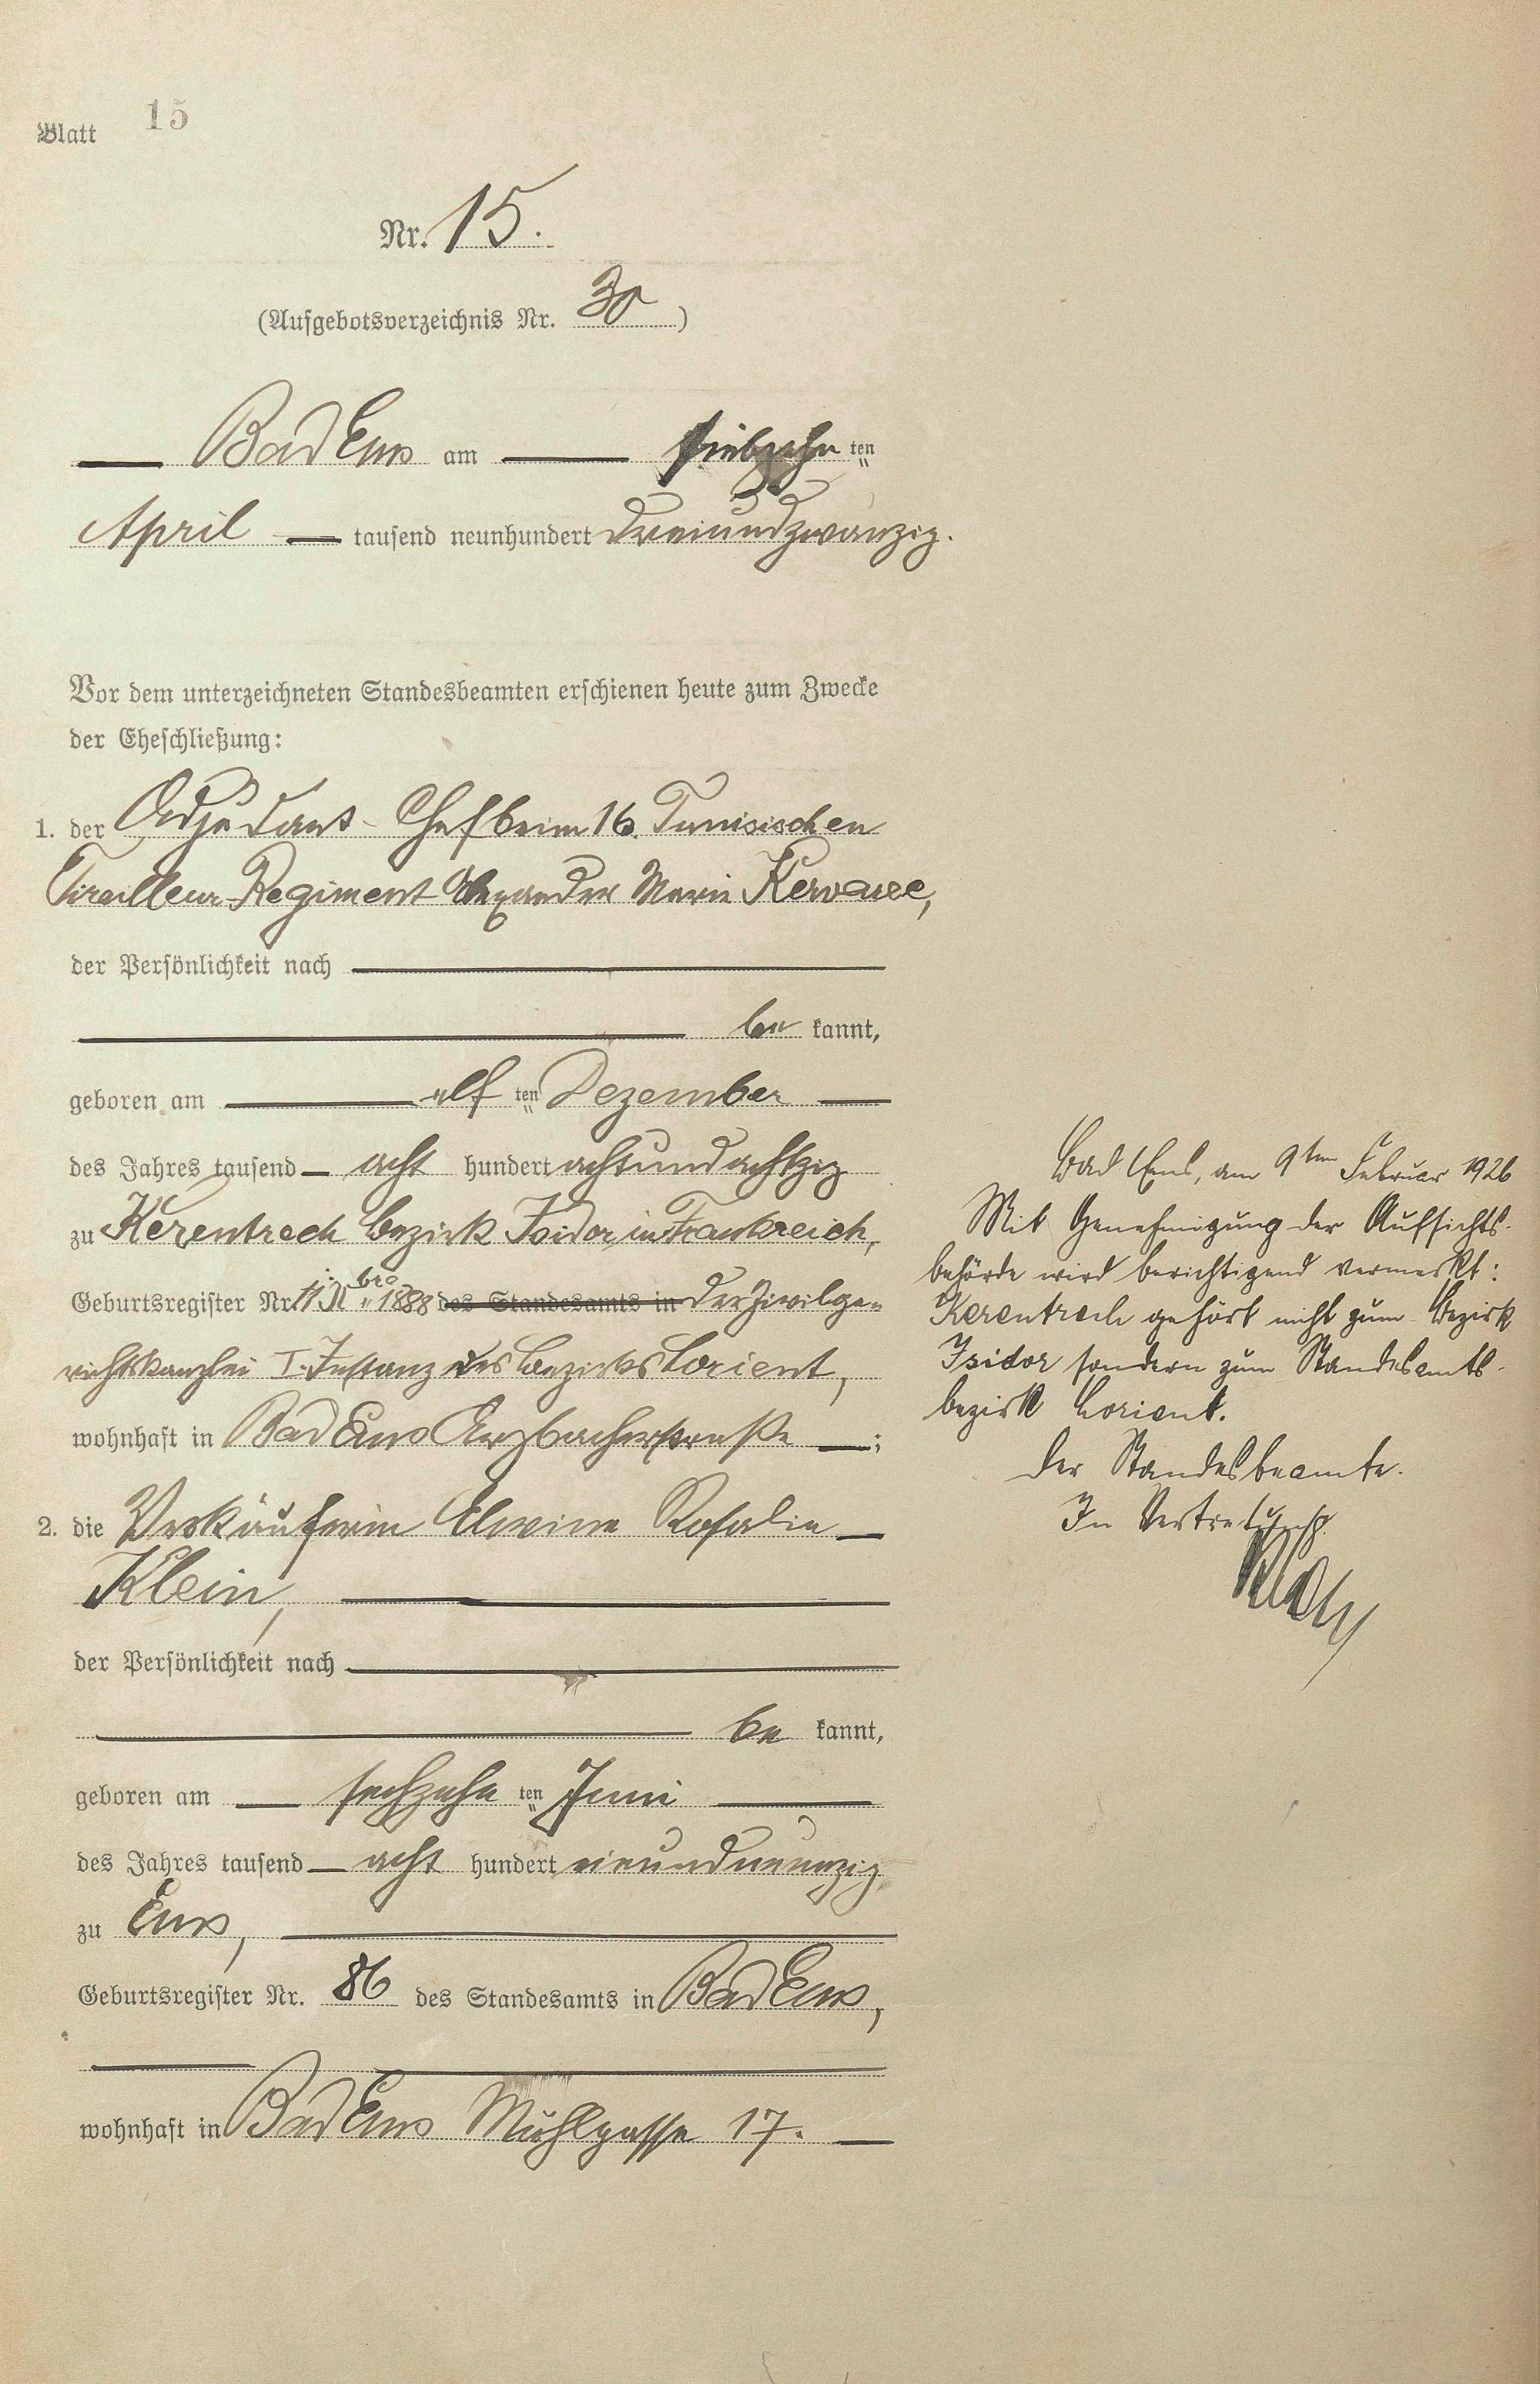 Blatt 15
Nr. 15.
(Aufgebotsverzeichnis Nr. 30)
Bad Ems am siebzehn ten
April tausend neunhundert dreiundzwanzig.
Vor dem unterzeichneten Standesbeamten erschienen heute zum Zwecke
der Eheschließung:
1. der Adjudant-Chef beim 16. Tunisischen
Tirailleur-Regiment Alexander Marie
der Persönlichkeit nach
be kannt,
geboren am elf ten Dezember
des Jahres tausend acht hundert achtundachtzig
zu Kerentrech Bezirk Isidor in Frankreich,
Geburtsregister Nr. 11 X bre 1888 des Standesamts in der Zivilge-
richtskanzlei I. Instanz des Bezirks Lorient,
wohnhaft in Bad Ems Arzbacherstraße ;
2. die Verkäuferin Elwine Rosalie
Klein,
der Persönlichkeit nach
be kannt,
geboren am sechzehn ten Juni
des Jahres tausend acht hundert vierundneunzig
zu Ems,
Geburtsregister Nr. 86 des Standesamts in Bad Ems,
wohnhaft in Bad Ems Mühlgasse 17.
Bad Ems, am 9ten Februar 1926
Mit Genehmigung der Aufsichts-
behörde wird berichtigend vermerkt:
Kerentrech gehört nicht zum Bezirk
Isidor sondern zum Standesamts-
bezirk Lorient.
Der Standesbeamte.
In Vertretung.